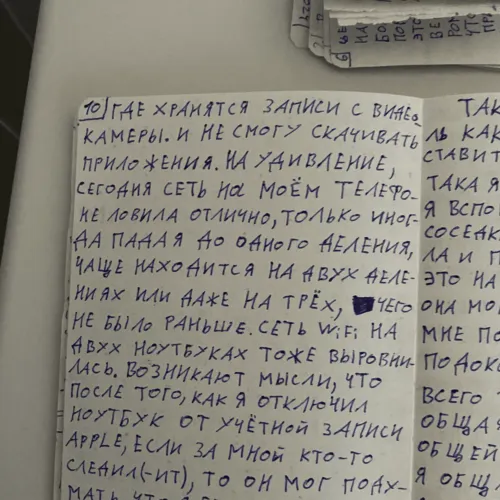 10 ГДЕ ХРАНЯТСЯ ЗАПИСИ С ВИДЕО
КАМЕРЫ. И НЕ СМОГУ СКАЧИВАТЬ
ПРИЛОЖЕНИЯ. НА УДИВЛЕНИЕ,
СЕГОДНЯ СЕТЬ НА МОЁМ ТЕЛЕФО-
НЕ ЛОВИЛА ОТЛИЧНО, ТОЛЬКО ИНОГ-
ДА ПАДАЯ ДО ОДНОГО ДЕЛЕНИЯ,
ЧАЩЕ НАХОДИТСЯ НА ДВУХ ДЕЛЕ-
НИЯХ ИЛИ ДАЖЕ НА ТРЁХ, ЧЕГО
НЕ БЫЛО РАНЬШЕ. СЕТЬ WiFi НА
ДВУХ НОУТБУКАХ ТОЖЕ ВЫРОВНИ-
ЛАСЬ. ВОЗНИКАЮТ МЫСЛИ, ЧТО
ПОСЛЕ ТОГО, КАК Я ОТКЛЮЧИЛ
НОУТБУК ОТ УЧЁТНОЙ ЗАПИСИ
APPLE, ЕСЛИ ЗА МНОЙ КТО-ТО
СЛЕДИЛ(-ИТ), ТО ОН МОГ ПОДУ-
МАТЬ, ЧТО Я
ТАК
ЛЬ КАК
СТАВИТ
ТАКА Я
Я ВСПО
СОСЕДК
ЛА И П
ЭТО НА
ОНА МО
МНЕ ПО
ПОДОК
ВСЕГО Т
ОБЩАЯ
ОБЩЕЙ
Я ОБЩ